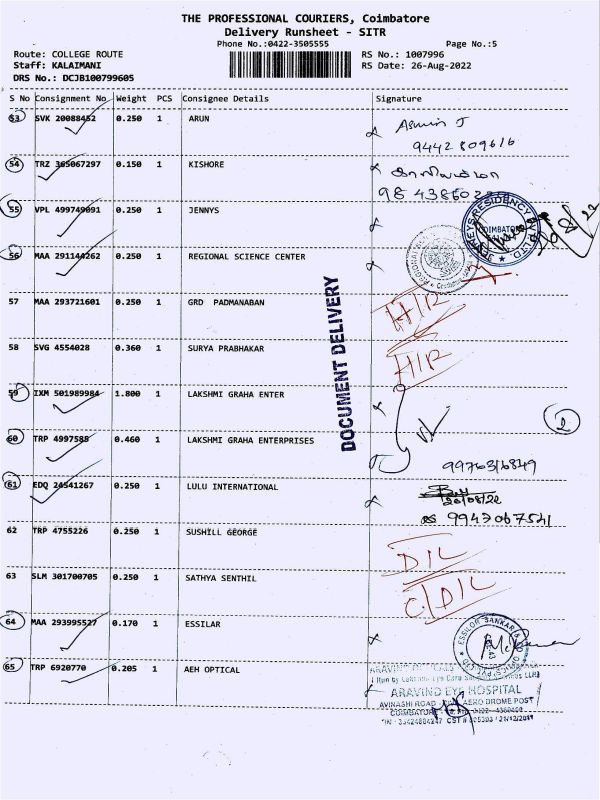 THE PROFESSIONAL COURIERS, Coimbatore
Delivery Runsheet - SITR
Phone No.:0422-3505555
Page No.:5
Route: COLLEGE ROUTE
RS No.: 1007996
Staff: KALAIMANI
RS Date: 26-Aug-2022
DRS No.: DCJB100799605
S No Consignment No Weight PCS Consignee Details Signature
53 SVK 20088452 0.250 1 ARUN
9442809616
54 TRZ 365067297 0.150 1 KISHORE
55 VPL 499749091 0.250 1 JENNYS
56 MAA 291144262 0.250 1 REGIONAL SCIENCE CENTER
57 MAA 293721601 0.250 1 GRD PADMANABAN
H/R
58 SVG 4554028 0.360 1 SURYA PRABHAKAR
H/R
DOCUMENT DELIVERY
59 IXM 501989984 1.800 1 LAKSHMI GRAHA ENTER
2
60 TRP 4997588 0.460 1 LAKSHMI GRAHA ENTERPRISES
9976316849
61 EDQ 24541267 0.250 1 LULU INTERNATIONAL
26/08/22
9947067541
62 TRP 4755226 0.250 1 SUSHILL GEORGE
D/L
63 SLM 301700705 0.250 1 SATHYA SENTHIL
C/D/L
64 MAA 293995527 0.170 1 ESSILAR
65 TRP 6920770 0.205 1 AEH OPTICAL
ARAVIND EYE HOSPITAL